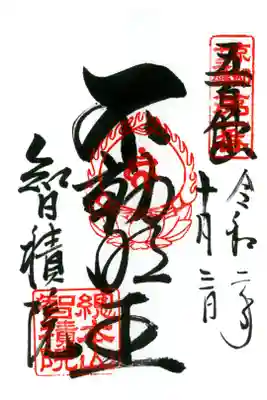 五百佛
令和二年
十月三日
不動明王
智積院
總本山
智積院